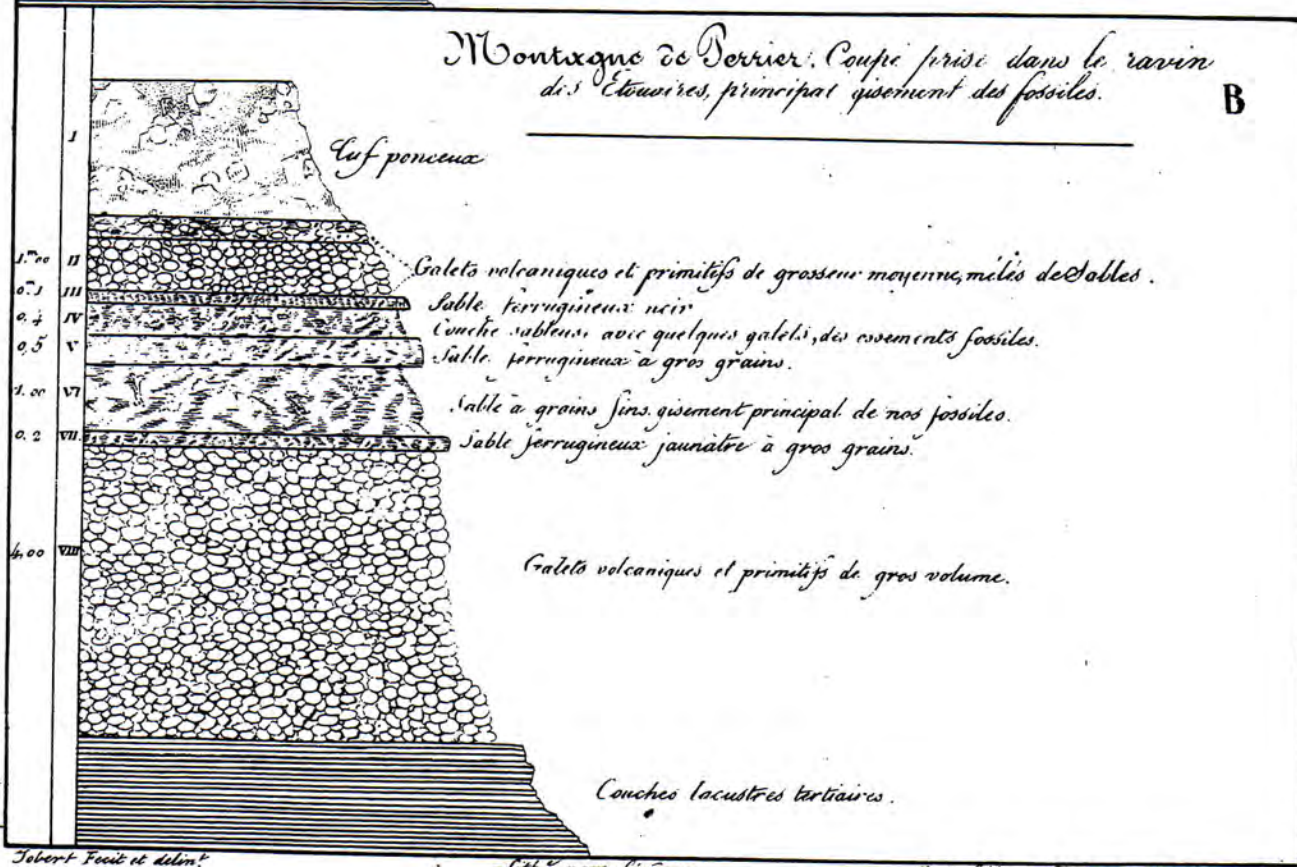 Montagne de Perrier. Coupe prise dans le ravin
des Etouaires, principal gisement des fossiles.
B
I
Tuf ponceux
1.m00 II
Galets volcaniques et primitifs de grosseur moyenne, mêlés de Sables.
0.m1 III
Sable ferrugineux noir
0,4 IV
Couche sableuse avec quelques galets, des ossements fossiles.
0,5 V
Sable ferrugineux à gros grains.
1.00 VI
Sable à grains fins, gisement principal de nos fossiles.
0.2 VII.
Sable ferrugineux jaunâtre à gros grains.
4,00 VIII
Galets volcaniques et primitifs de gros volume.
Couches lacustres tertiaires.
Jobert Fecit et delin.t